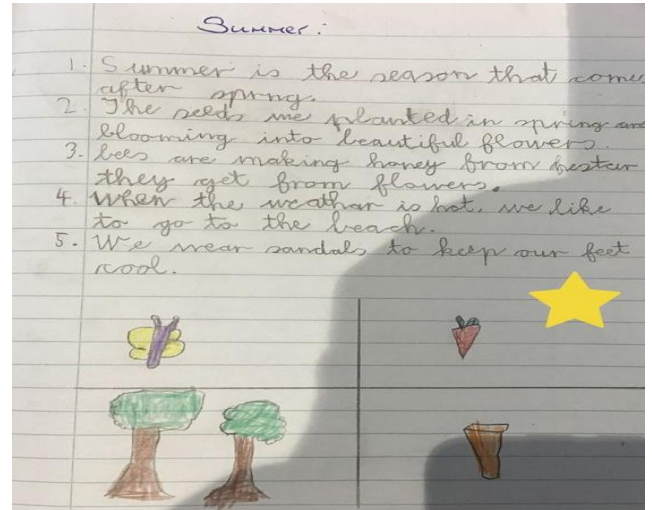 Summer:
1. Summer is the season that comes
after spring.
2. The seeds we planted in spring are
blooming into beautiful flowers.
3. bees are making honey from nestar
they get from flowers.
4. When the weathar is hot, we like
to go to the beach.
5. We wear sandals to keep our feet
cool.